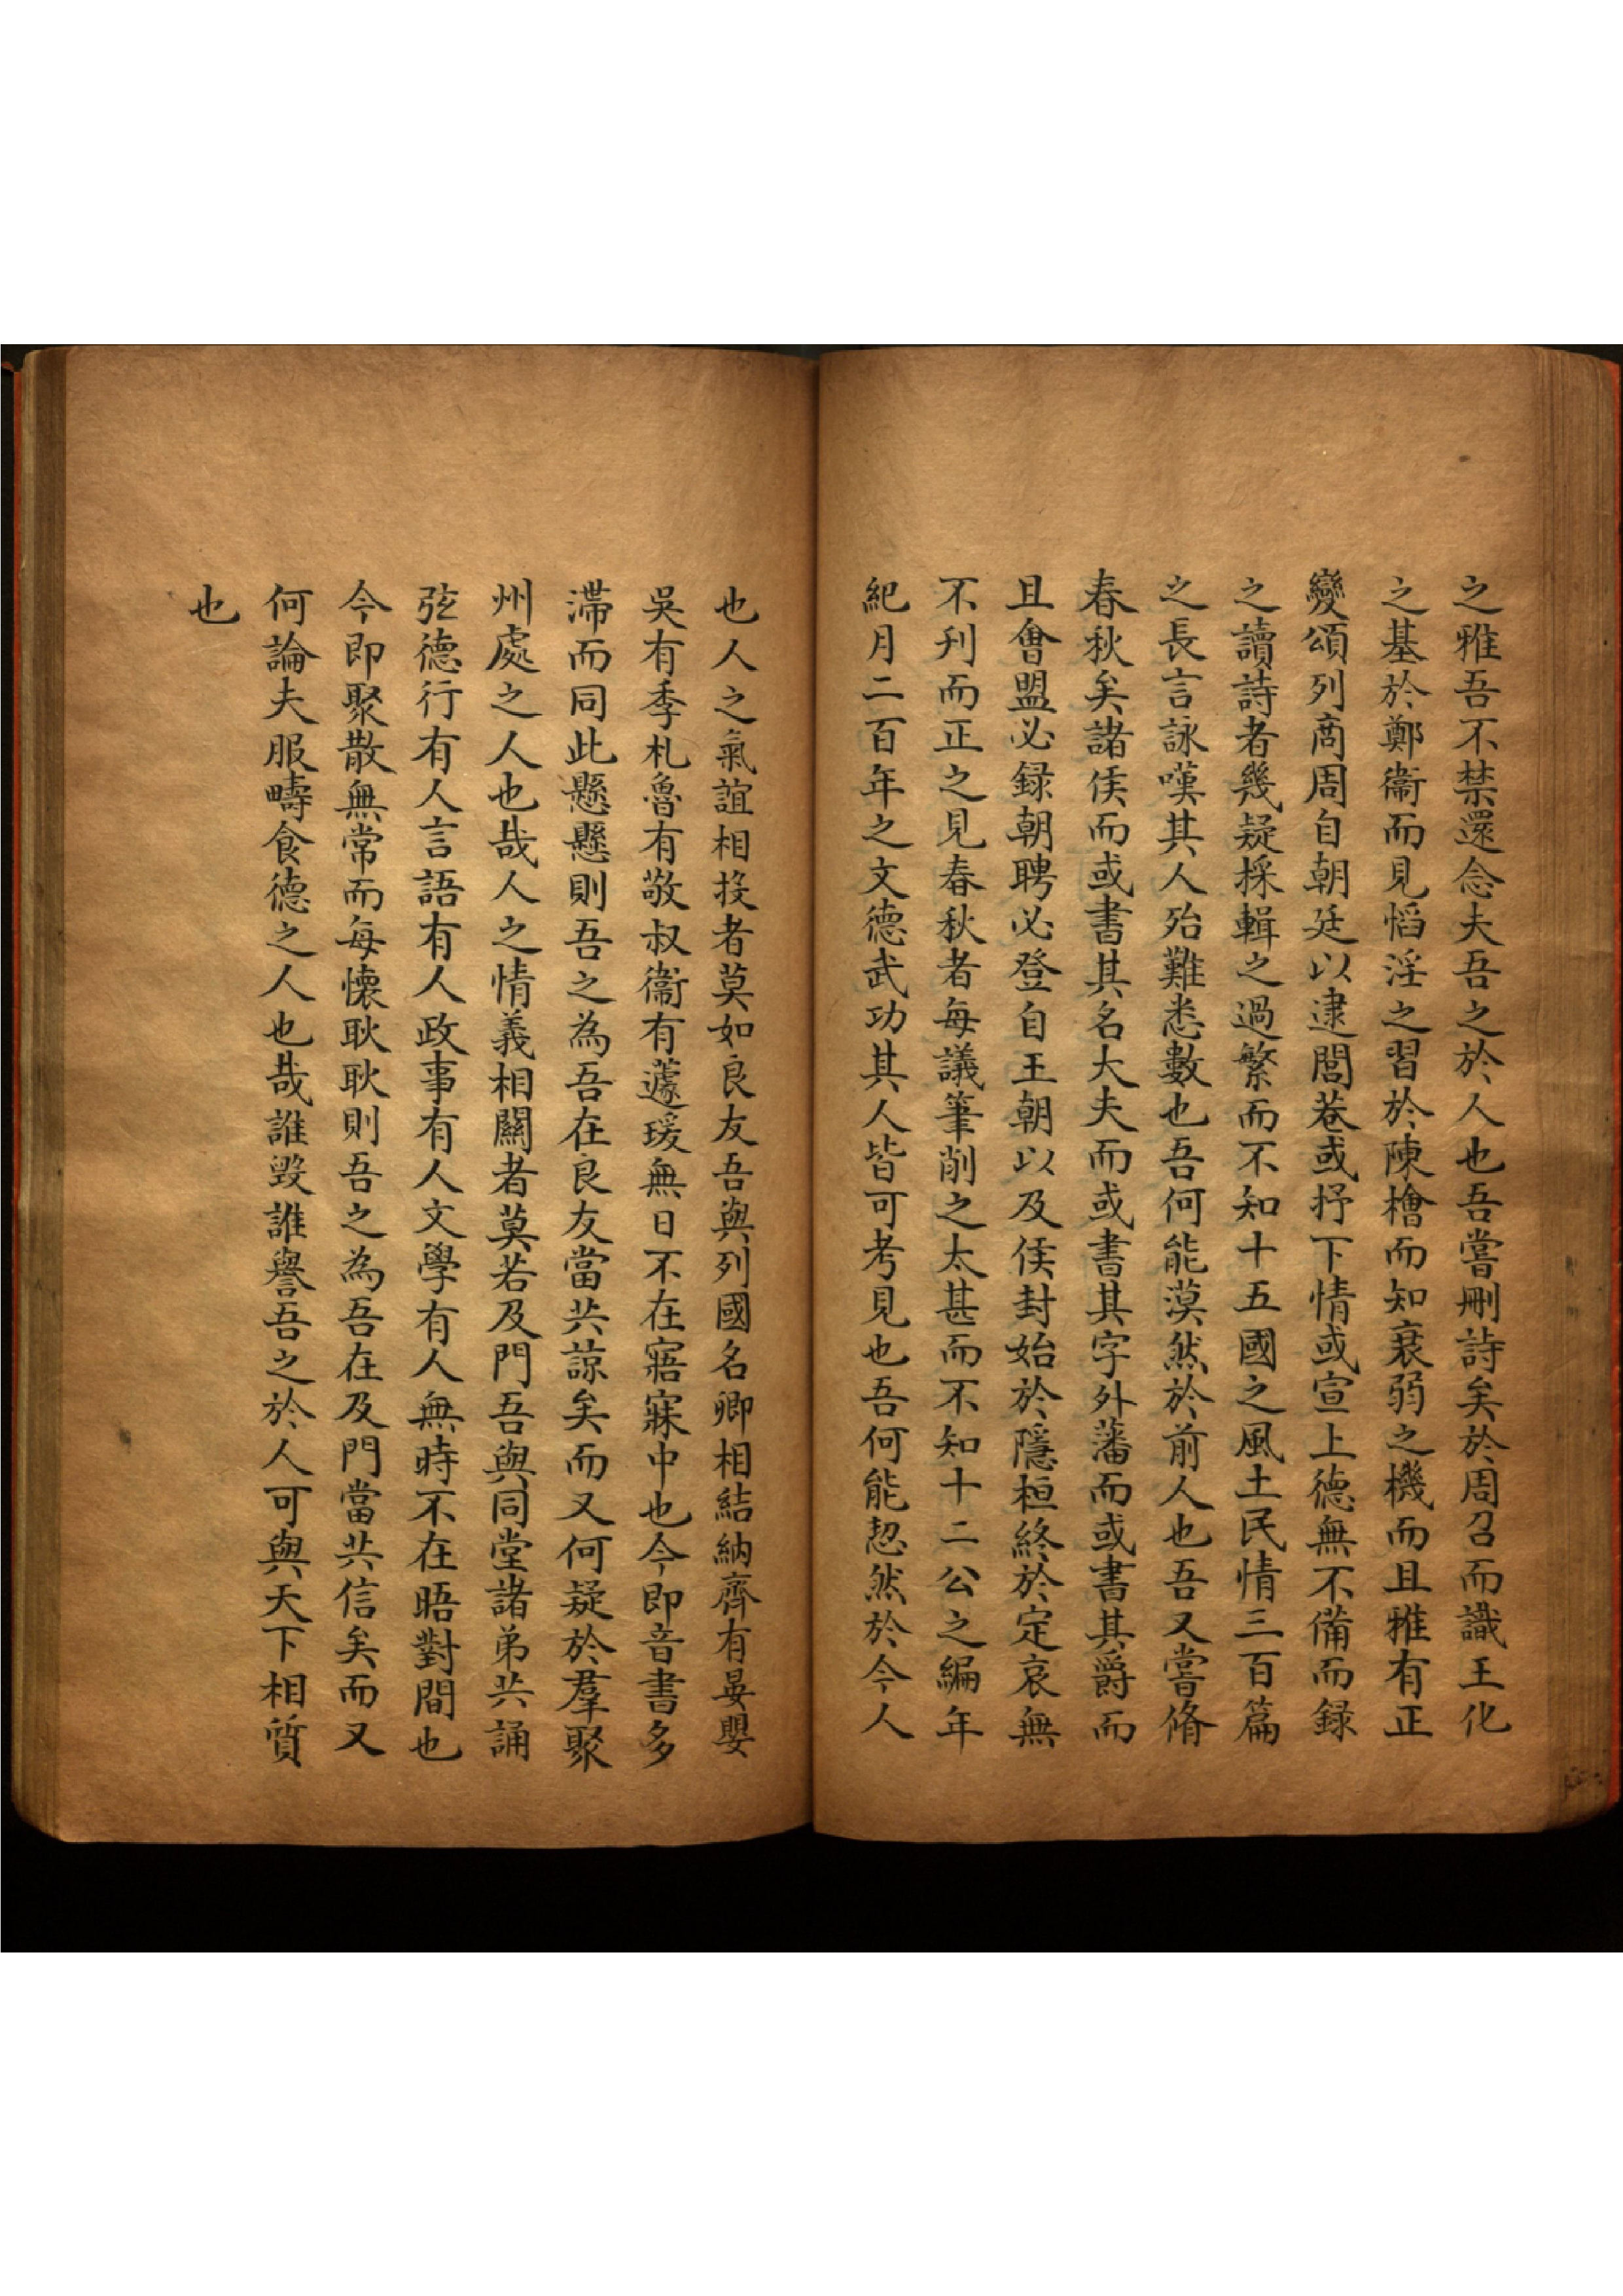 之雅吾不禁還念夫吾之於人也吾嘗刪詩矣於周召而識王化
之基於鄭衞而見慆淫之習於陳檜而知衰弱之機而且雅有正
變頌列商周自朝廷以逮閭巷或抒下情或宣上德無不備而録
之讀詩者幾疑採輯之過繁而不知十五國之風土民情三百篇
之長言詠嘆其人殆難悉數也吾何能漠然於前人也吾又嘗脩
春秋矣諸侯而或書其名大夫而或書其字外藩而或書其爵而
且會盟必録朝聘必登自王朝以及侯封始於隱桓終於定哀無
不刋而正之見春秋者每議筆削之太甚而不知十二公之編年
紀月二百年之文德武功其人皆可考見也吾何能恝然於今人
也人之氣誼相投者莫如良友吾與列國名卿相結納齊有晏嬰
吳有季札魯有敬叔衞有蘧瑗無日不在寤寐中也今即音書多
滯而同此懸懸則吾之為吾在良友當共諒矣而又何疑於羣聚
州處之人也哉人之情義相關者莫若及門吾與同堂諸弟共誦
弦德行有人言語有人政事有人文學有人無時不在晤對間也
今即聚散無常而每懷耿耿則吾之為吾在及門當共信矣而又
何論夫服疇食德之人也哉誰毀誰譽吾之於人可與天下相質
也